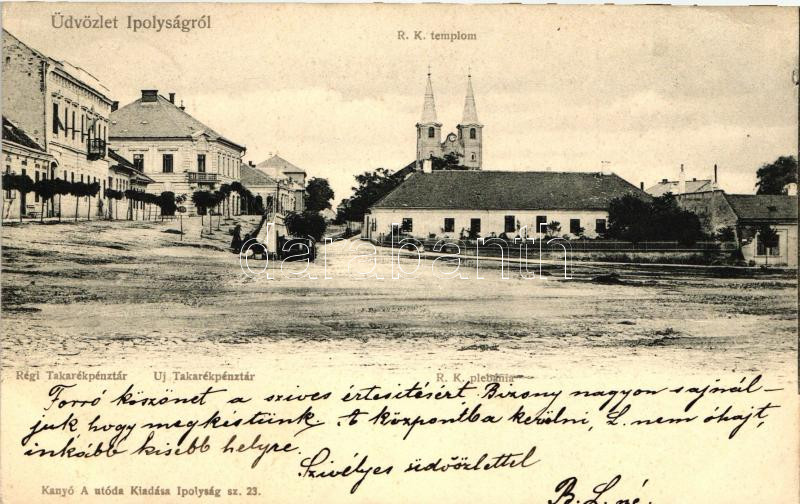 Üdvözlet Ipolyságról
R. K. templom
darabanth
Régi Takarékpénztár Uj Takarékpénztár R. K. plebánia
Forró köszönet a szives értesitésért. Bizony nagyon sajnál-
juk hogy megkéstünk. A központba kerülni, L. nem óhajt,
inkább kisebb helyre.
Szivélyes üdvözlettel
B. L. né.
Kanyó A utóda Kiadása Ipolyság sz. 23.